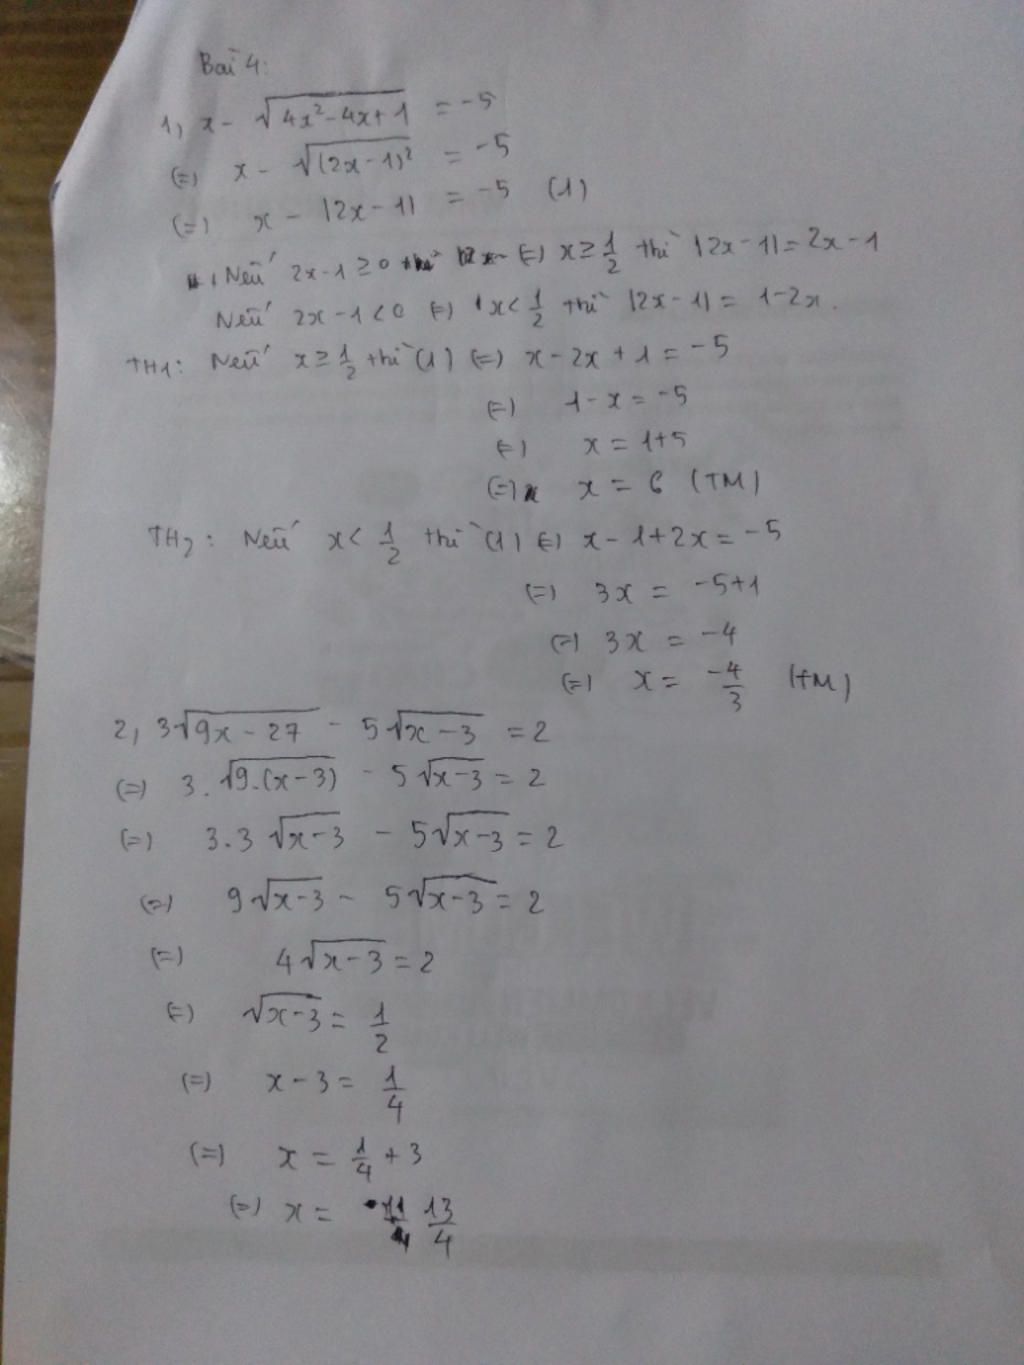 Bài 4:
1, x - √(4x² - 4x + 1) = -5
(=) x - √((2x - 1)²) = -5
(=) x - |2x - 1| = -5 (1)
Nếu 2x - 1 ≥ 0 (=) x ≥ 1/2 thì |2x - 1| = 2x - 1
Nếu 2x - 1 < 0 (=) x < 1/2 thì |2x - 1| = 1 - 2x.
TH1: Nếu x ≥ 1/2 thì (1) (=) x - 2x + 1 = -5
(=) 1 - x = -5
(=) x = 1 + 5
(=) x = 6 (TM)
TH2: Nếu x < 1/2 thì (1) (=) x - 1 + 2x = -5
(=) 3x = -5 + 1
(=) 3x = -4
(=) x = -4/3 (TM)
2, 3√(9x - 27) - 5√(x - 3) = 2
(=) 3.√(9.(x - 3)) - 5√(x - 3) = 2
(=) 3.3√(x - 3) - 5√(x - 3) = 2
(=) 9√(x - 3) - 5√(x - 3) = 2
(=) 4√(x - 3) = 2
(=) √(x - 3) = 1/2
(=) x - 3 = 1/4
(=) x = 1/4 + 3
(=) x = 13/4